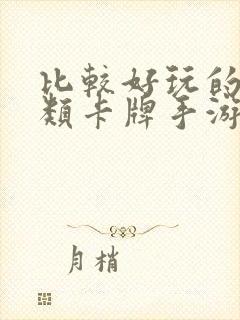 比較好玩的
類卡牌手游
月梢